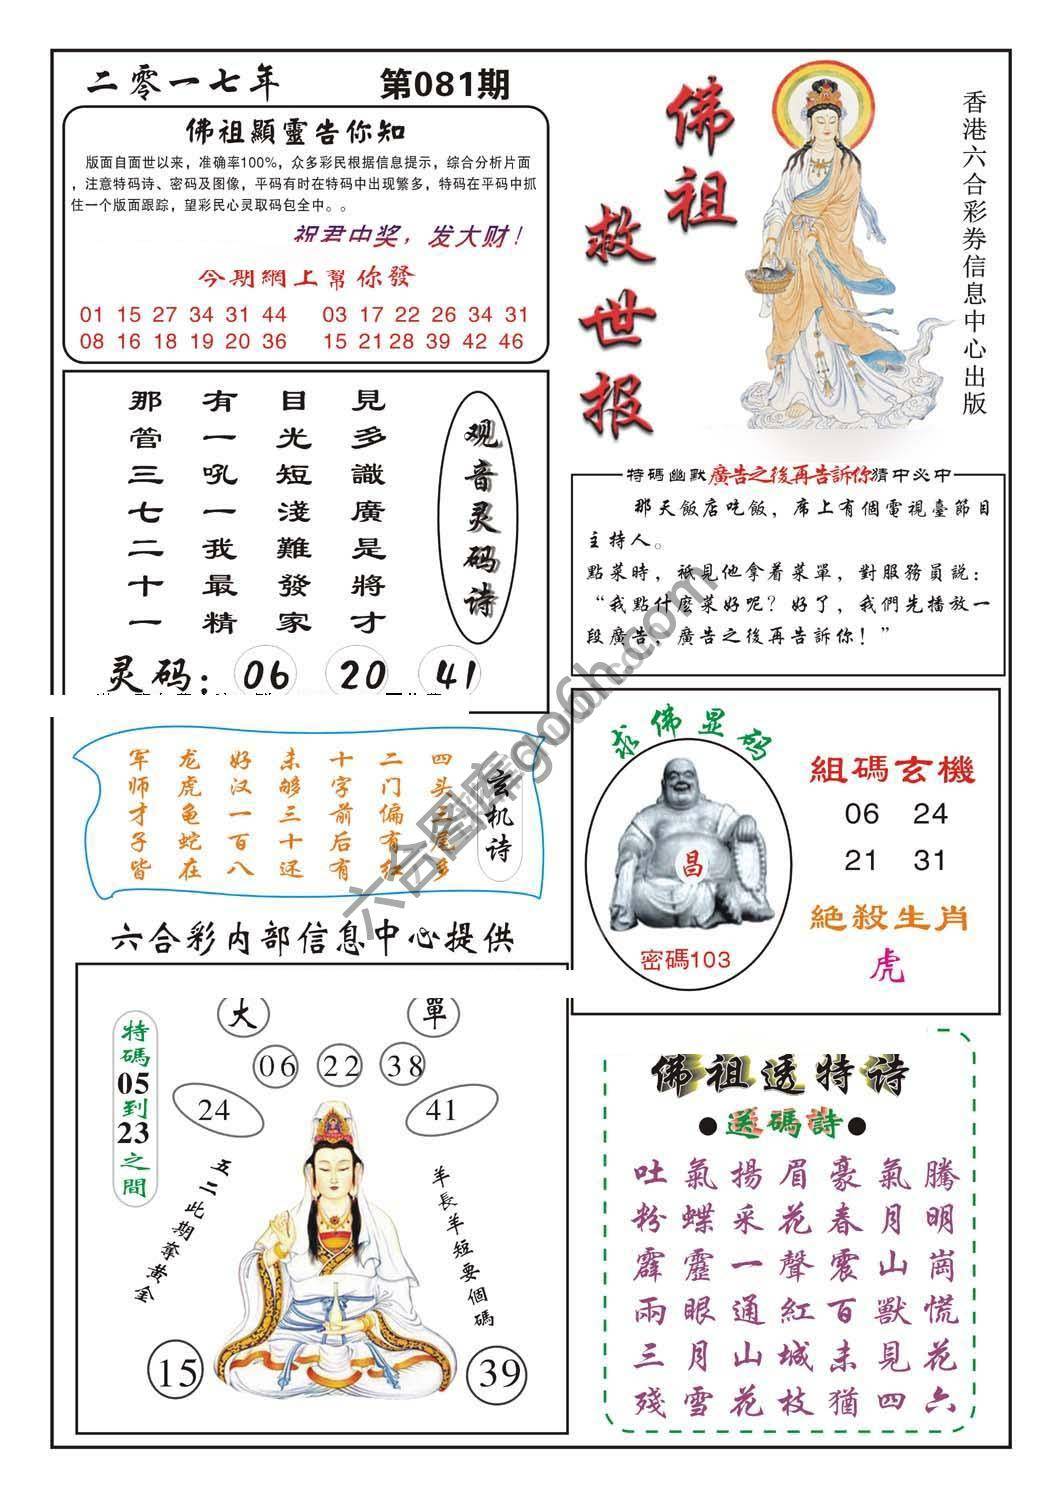 二零一七年
第081期
佛祖顯靈告你知
版面自面世以来，准确率100%，众多彩民根据信息提示，综合分析片面
，注意特码诗、密码及图像，平码有时在特码中出现繁多，特码在平码中抓
住一个版面跟踪，望彩民心灵取码包全中。。
祝君中奖，发大财！
今期網上幫你發
01 15 27 34 31 44
03 17 22 26 34 31
08 16 18 19 20 36
15 21 28 39 42 46
佛祖
救世报
香港六合彩券信息中心出版
观音灵码诗
見多識廣是將才
目光短淺難發家
有一吼一我最精
那管三七二十一
灵码：
06
20
41
特碼幽默廣告之後再告訴你猜中必中
那天飯店吃飯，席上有個電視臺節目
主持人。
點菜時，祇見他拿着菜單，對服務員説：
“我點什麽菜好呢？好了，我們先播放一
段廣告，廣告之後再告訴你！”
玄机诗
四头三尾多
二门偏有红
十字前后有
未够三十还
好汉一百八
龙虎龟蛇在
军师才子皆
求佛显码
昌
密碼103
組碼玄機
06 24
21 31
絶殺生肖
虎
六合彩内部信息中心提供
大
單
06
22
38
24
41
特碼05到23之間
五二此期奪黄金
羊長羊短要個碼
15
39
佛祖透特诗
●送碼詩●
吐氣揚眉豪氣騰
粉蝶采花春月明
霹靂一聲震山崗
兩眼通紅百獸慌
三月山城未見花
殘雪花枝猶四六
六合图库go6h.com